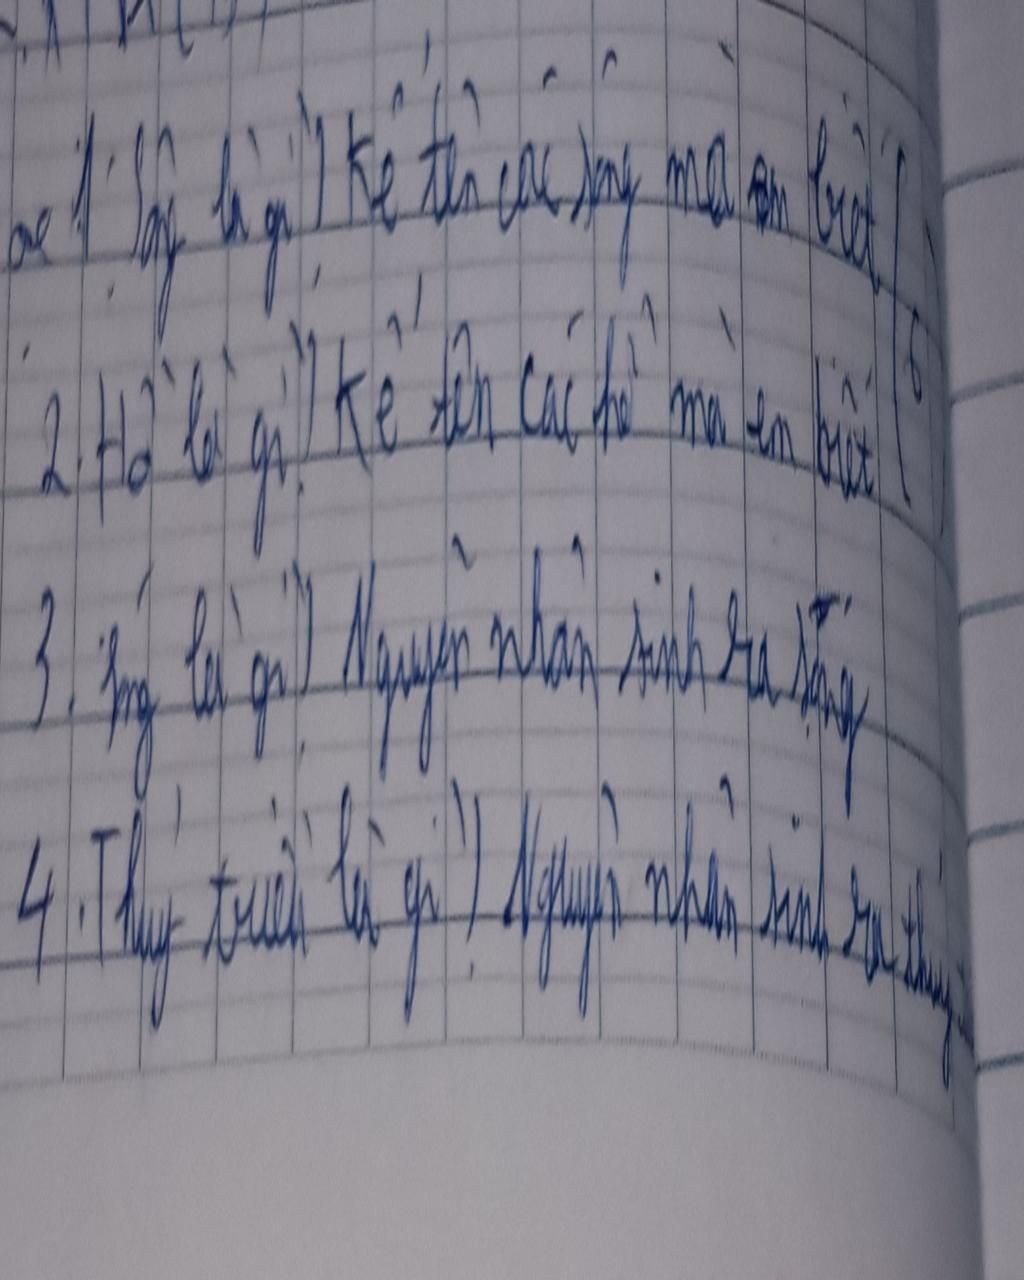 1. Sông là gì? Kể tên các sông mà em biết
2. Hồ là gì? Kể tên các hồ mà em biết
3. Sóng là gì? Nguyên nhân sinh ra sóng
4. Thủy triều là gì? Nguyên nhân sinh ra thủy